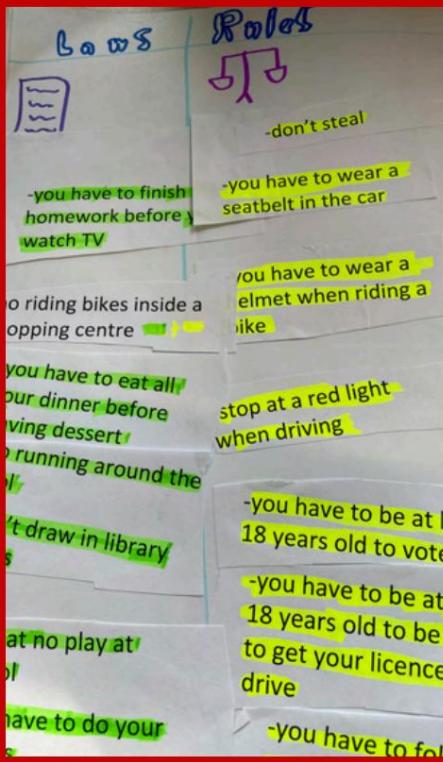 Laws
Rules
-you have to finish
homework before
watch TV
o riding bikes inside a
opping centre
you have to eat all
our dinner before
ving dessert
running around the
't draw in library
at no play at
have to do your
-don't steal
-you have to wear a
seatbelt in the car
you have to wear a
elmet when riding a
ike
stop at a red light
when driving
-you have to be at
18 years old to vote
-you have to be at
18 years old to be
to get your licence
drive
-you have to fol